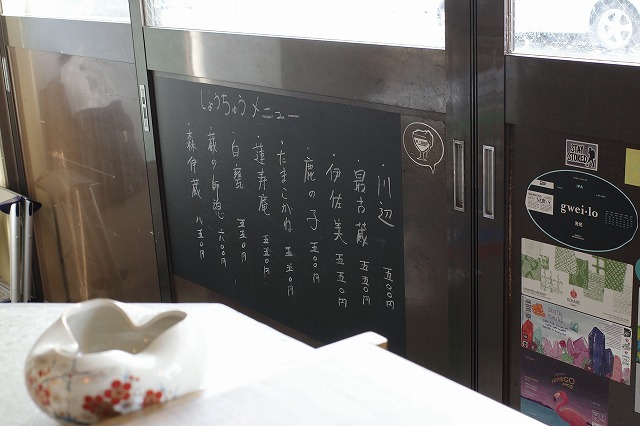 しょうちゅうメニュー
・川辺 五〇〇円
・最古蔵 五五〇円
・伊佐美 五五〇円
・鹿の子 五〇〇円
・たまこがね 五五〇円
・蓮寿庵 五五〇円
・白甕 五五〇円
・蔵の師魂 六〇〇円
・森伊蔵 八五〇円
STAY
STOKED
gwei·lo
GO